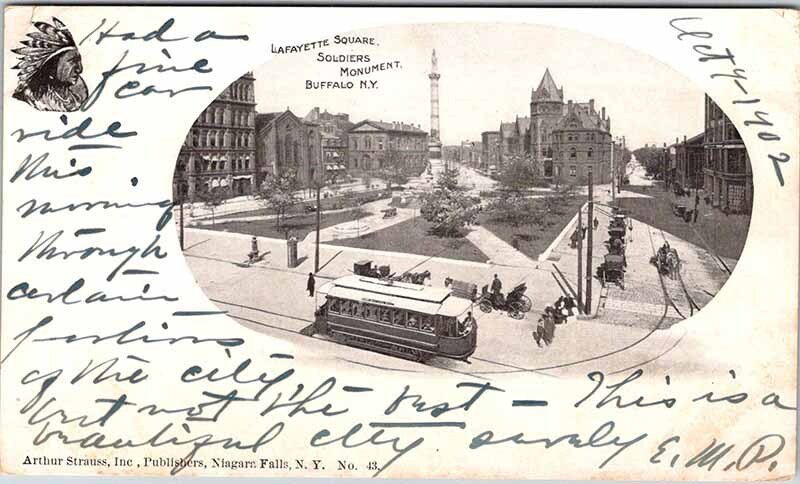 LAFAYETTE SQUARE,
SOLDIERS
MONUMENT,
BUFFALO N.Y.
Oct 7-1902
Had a
fine
car
ride
this
morning
through
certain
portions
of the city,
but not the best — This is a
beautiful city surely E.M.P.
Arthur Strauss, Inc, Publishers, Niagara Falls, N. Y. No. 43.